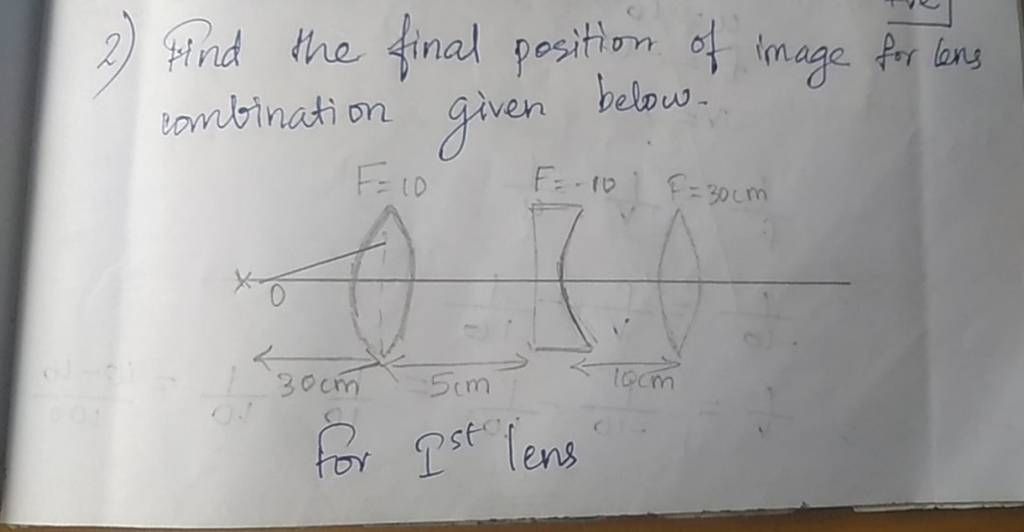 2) Find the final position of image for lens
combination given below.
F=10 F=-10 F=30cm
X O
30cm 5cm 10cm
for Ist lens